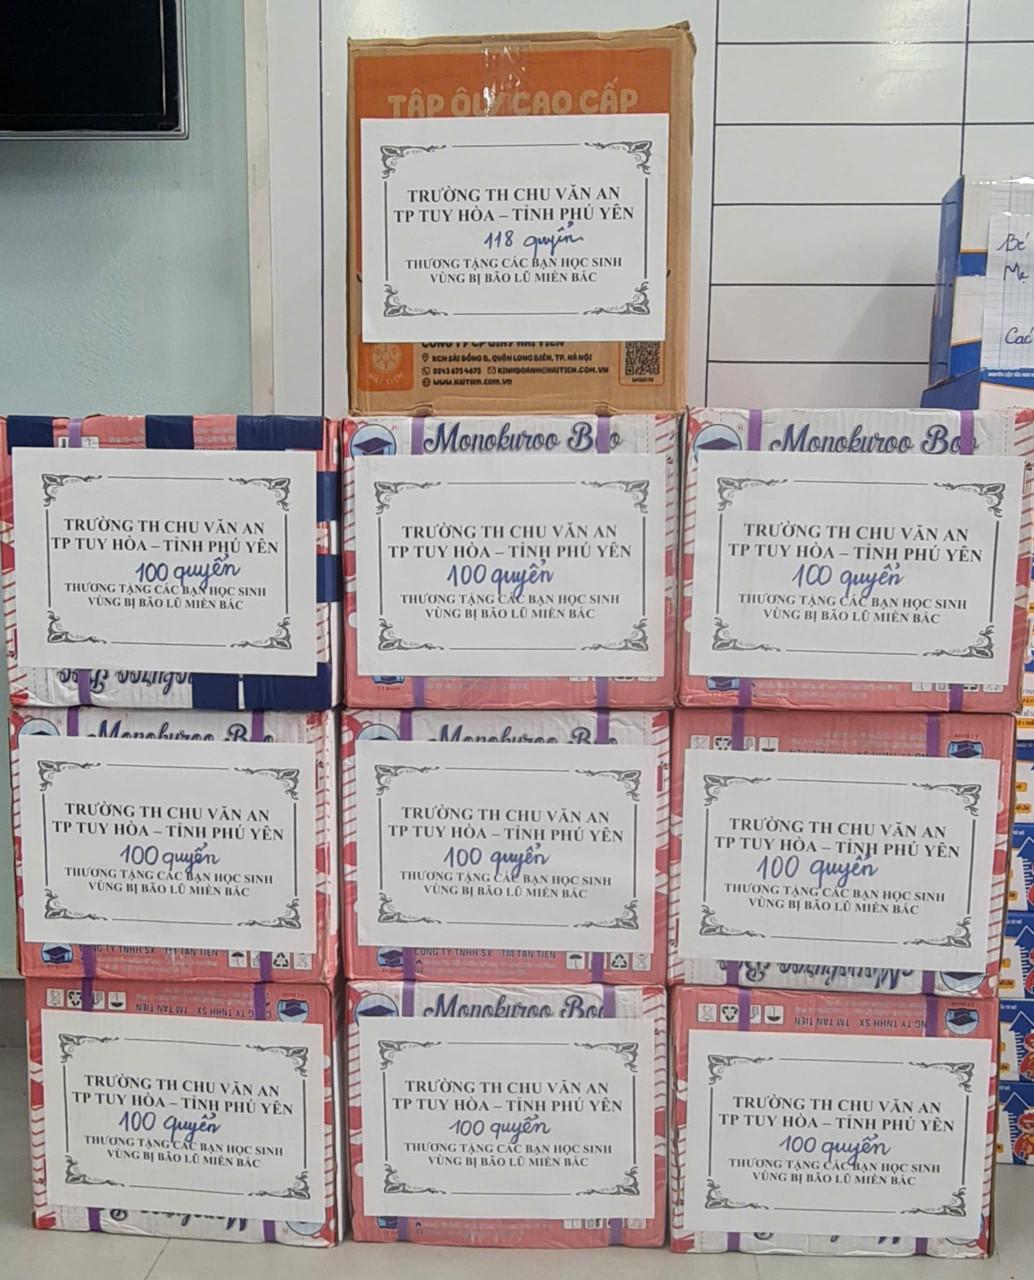 TẬP ÔLY CAO CẤP
TRƯỜNG TH CHU VĂN AN
TP TUY HÒA – TỈNH PHÚ YÊN
118 quyển
THƯƠNG TẶNG CÁC BẠN HỌC SINH
VÙNG BỊ BÃO LŨ MIỀN BẮC
HẢI TIẾN
KCN SÀI ĐỒNG B, QUẬN LONG BIÊN, TP. HÀ NỘI
KINHDOANH@HAITIEN.COM.VN
www.haitien.com.vn
Bé
Mẹ
Các
Monokuroo Boo
Monokuroo Boo
TRƯỜNG TH CHU VĂN AN
TP TUY HÒA – TỈNH PHÚ YÊN
100 quyển
THƯƠNG TẶNG CÁC BẠN HỌC SINH
VÙNG BỊ BÃO LŨ MIỀN BẮC
TRƯỜNG TH CHU VĂN AN
TP TUY HÒA – TỈNH PHÚ YÊN
100 quyển
THƯƠNG TẶNG CÁC BẠN HỌC SINH
VÙNG BỊ BÃO LŨ MIỀN BẮC
TRƯỜNG TH CHU VĂN AN
TP TUY HÒA – TỈNH PHÚ YÊN
100 quyển
THƯƠNG TẶNG CÁC BẠN HỌC SINH
VÙNG BỊ BÃO LŨ MIỀN BẮC
Monokuroo Boo
Monokuroo Boo
TRƯỜNG TH CHU VĂN AN
TP TUY HÒA – TỈNH PHÚ YÊN
100 quyển
THƯƠNG TẶNG CÁC BẠN HỌC SINH
VÙNG BỊ BÃO LŨ MIỀN BẮC
CÔNG TY TNHH SX - TM TÂN TIẾN
TRƯỜNG TH CHU VĂN AN
TP TUY HÒA – TỈNH PHÚ YÊN
100 quyển
THƯƠNG TẶNG CÁC BẠN HỌC SINH
VÙNG BỊ BÃO LŨ MIỀN BẮC
CÔNG TY TNHH SX - TM TÂN TIẾN
TRƯỜNG TH CHU VĂN AN
TP TUY HÒA – TỈNH PHÚ YÊN
100 quyển
THƯƠNG TẶNG CÁC BẠN HỌC SINH
VÙNG BỊ BÃO LŨ MIỀN BẮC
Monokuroo Boo
TRƯỜNG TH CHU VĂN AN
TP TUY HÒA – TỈNH PHÚ YÊN
100 quyển
THƯƠNG TẶNG CÁC BẠN HỌC SINH
VÙNG BỊ BÃO LŨ MIỀN BẮC
Monokuroo Boo
TRƯỜNG TH CHU VĂN AN
TP TUY HÒA – TỈNH PHÚ YÊN
100 quyển
THƯƠNG TẶNG CÁC BẠN HỌC SINH
VÙNG BỊ BÃO LŨ MIỀN BẮC
TY TNHH SX - TM TÂN TIẾN
TRƯỜNG TH CHU VĂN AN
TP TUY HÒA – TỈNH PHÚ YÊN
100 quyển
THƯƠNG TẶNG CÁC BẠN HỌC SINH
VÙNG BỊ BÃO LŨ MIỀN BẮC